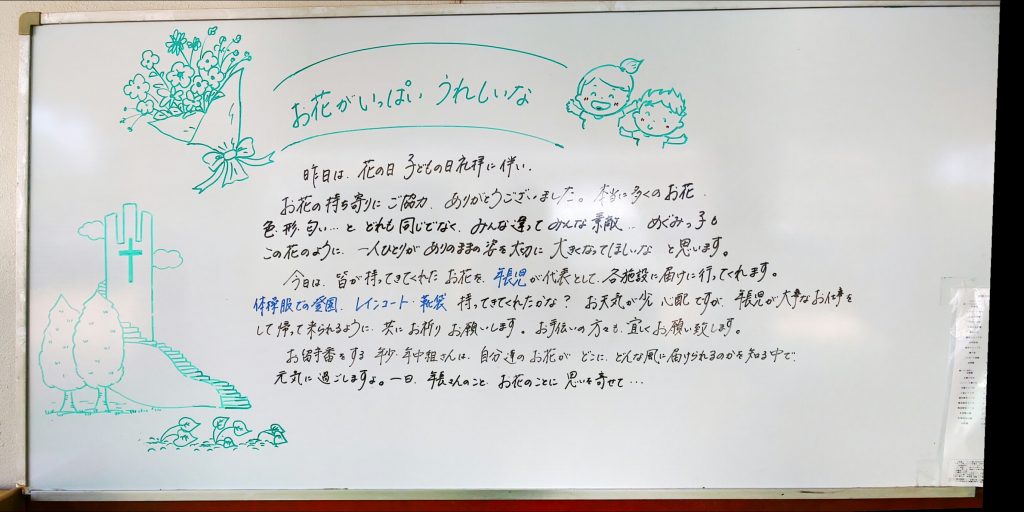 お花がいっぱい うれしいな
昨日は、花の日 子どもの日礼拝に伴い、
お花の持ち寄りに ご協力、ありがとうございました。本当に多くのお花、
色・形・匂い…と どれも同じでなく、みんな違って みんな素敵… めぐみっ子も
この花のように、一人ひとりが ありのままの姿を大切に 大きくなってほしいな と思います。
今日は、皆が持ってきてくれた お花を、年長児が代表として、各施設に届けに行ってくれます。
体操服での登園、レインコート・靴袋 持ってきてくれたかな？ お天気が少し心配ですが、年長児が大事なお仕事を
して帰って来られるように、共にお祈り お願いします。お手伝いの方々も、宜しくお願い致します。
お留守番をする 年少・年中組さんは、自分達のお花が どこに、どんな風に届けられるのかを知る中で、
元気に過ごしますよ。一日、年長さんのこと、お花のことに 思いを寄せて…